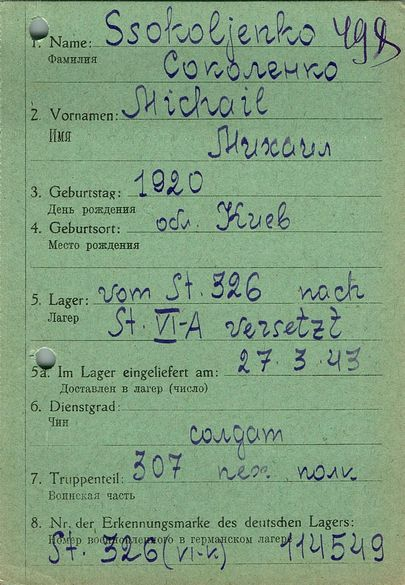 Ssokoljenko
1. Name:
Фамилия
Соколенко
2. Vornamen: Michail
Имя
Михаил
3. Geburtstag: 1920
День рождения
4. Geburtsort: обл. Киев
Место рождения
5. Lager: vom St. 326 nach
Лагерь
St. VI-A versetzt
5a. Im Lager eingeliefert am: 27.3.43
Доставлен в лагерь (число)
6. Dienstgrad:
Чин
солдат
7. Truppenteil: 307 пех. полк
Воинская часть
8. Nr. der Erkennungsmarke des deutschen Lagers:
Номер военнопленного в германском лагере
St. 326 (VI-K) 114549